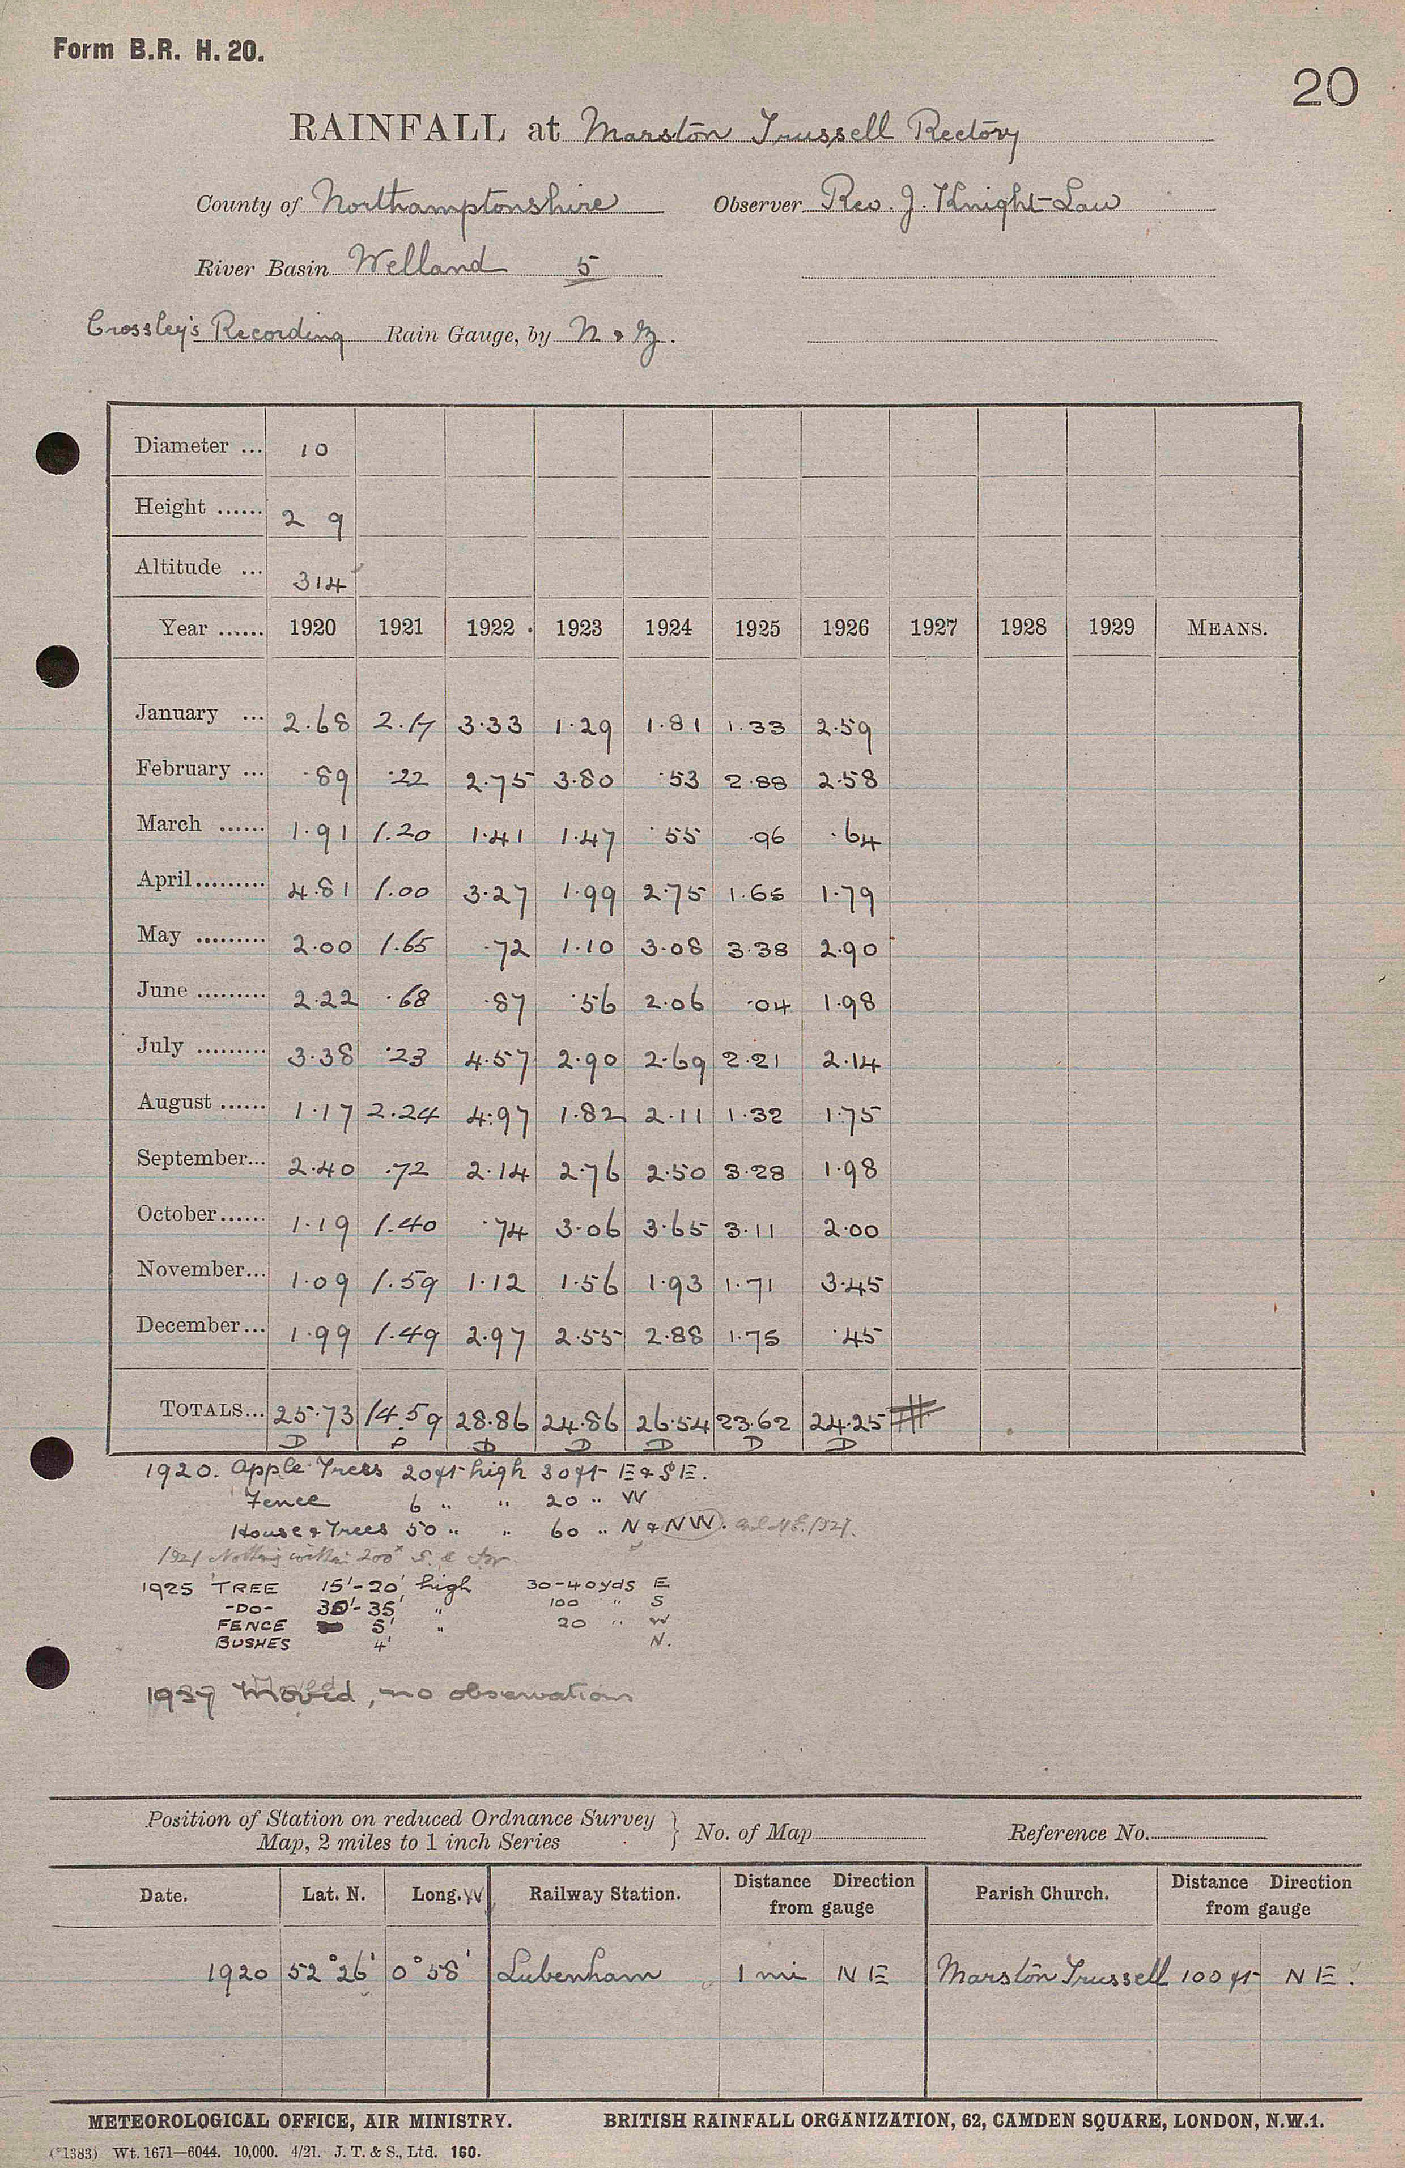 Form B.R. H. 20.
20
RAINFALL at Marston Trussell Rectory
County of Northamptonshire Observer Rev. J. Knight-Law
River Basin Welland 5
Crossley's Recording Rain Gauge, by N & Z.
Diameter ... 10
Height ...... 2 9
Altitude ... 314
Year ...... 1920 1921 1922 1923 1924 1925 1926 1927 1928 1929 MEANS.
January ... 2.68 2.17 3.33 1.29 1.81 1.33 2.59
February ... .89 .22 2.75 3.80 .53 2.88 2.58
March ...... 1.91 1.20 1.41 1.47 .55 .96 .64
April......... 4.81 1.00 3.27 1.99 2.75 1.65 1.79
May ......... 2.00 1.65 .72 1.10 3.08 3.38 2.90
June ......... 2.22 .68 .87 .56 2.06 .04 1.98
July ......... 3.38 .23 4.57 2.90 2.69 2.21 2.14
August ...... 1.17 2.24 4.97 1.82 2.11 1.32 1.75
September... 2.40 .72 2.14 2.76 2.50 3.28 1.98
October...... 1.19 1.40 .74 3.06 3.65 3.11 2.00
November... 1.09 1.59 1.12 1.56 1.93 1.71 3.45
December... 1.99 1.49 2.97 2.55 2.88 1.75 .45
TOTALS... 25.73 14.59 28.86 24.86 26.54 23.62 24.25
D D D D D D D
1920. Apple Trees 20 ft high 30 ft E & SE.
Fence 6 " " 20 " W
House & Trees 50 " " 60 " N & NW.
1921 Nothing within 200
1925 TREE 15'-20' high 30-40 yds E
-DO- 30'-35' " 100 " S
FENCE 5' " 20 " W
BUSHES 4' N.
1927 Moved, no observations
Position of Station on reduced Ordnance Survey
Map, 2 miles to 1 inch Series } No. of Map Reference No.
Date. Lat. N. Long. W Railway Station. Distance Direction from gauge Parish Church. Distance Direction from gauge
1920 52°26' 0°58' Lubenham 1 mi NE Marston Trussell 100 ft NE.
METEOROLOGICAL OFFICE, AIR MINISTRY. BRITISH RAINFALL ORGANIZATION, 62, CAMDEN SQUARE, LONDON, N.W.1.
(*1383) Wt. 1671—6044. 10,000. 4/21. J. T. & S., Ltd. 160.